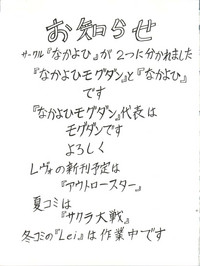 お知らせ
サークル『なかよひ』が2つに分かれました
『なかよひモグダン』と『なかよひ』
です
『なかよひモグダン』代表は
モグダンです
よろしく
レヴォの新刊予定は
『アウトロースター』
夏コミは
『サクラ大戦』
冬コミの『Lei』は作業中です